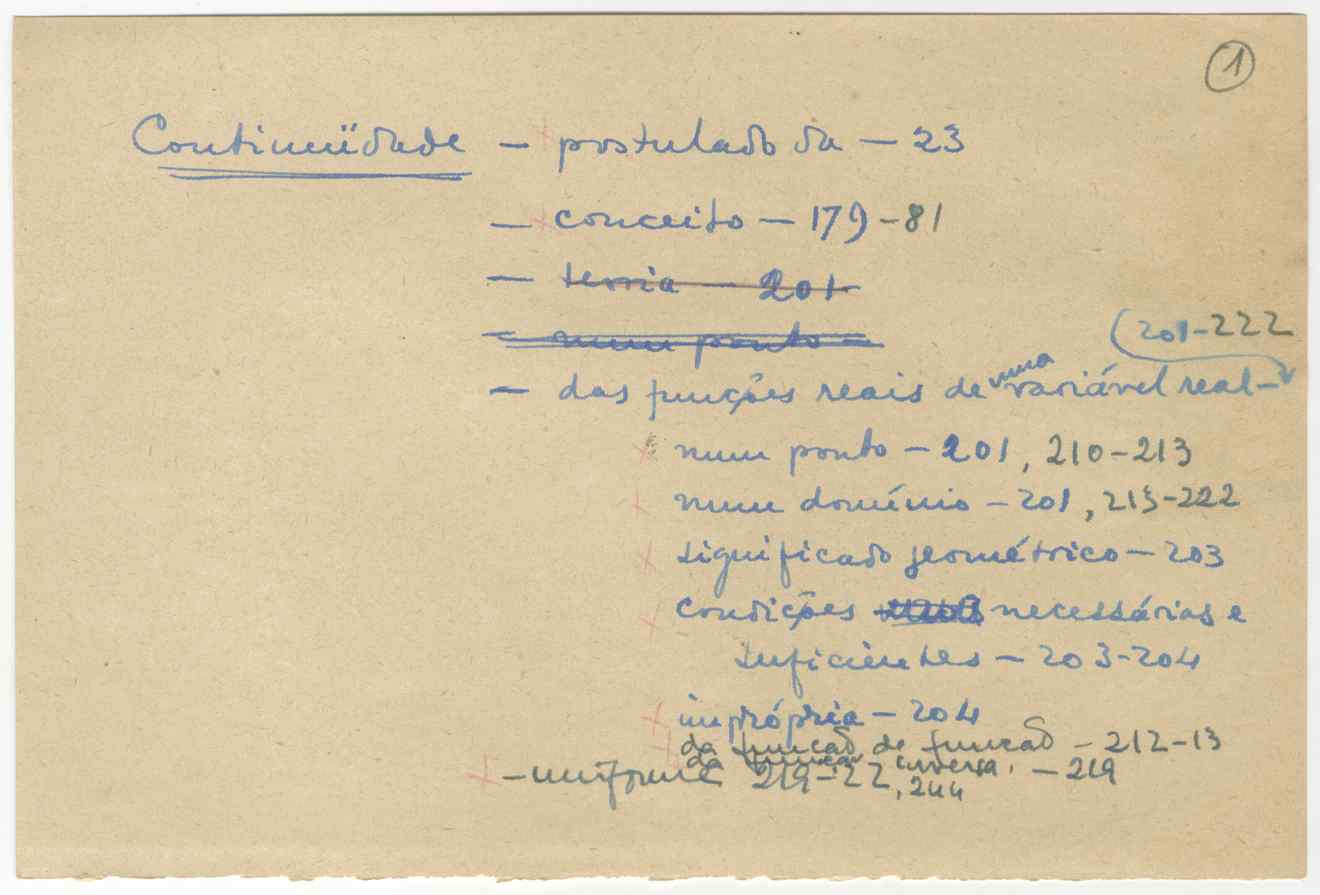 1
Continuïdade – postulado da – 23
– conceito – 179-81
– teoria – 201
– num ponto –
(201-222
– das funções reais de numa variável real –
num ponto – 201, 210-213
num domínio – 201, 213-222
significado geométrico – 203
condições necessárias e
suficientes – 203-204
imprópria – 204
da função de função – 212-13
da função inversa, – 219
– uniforme 219-22, 244